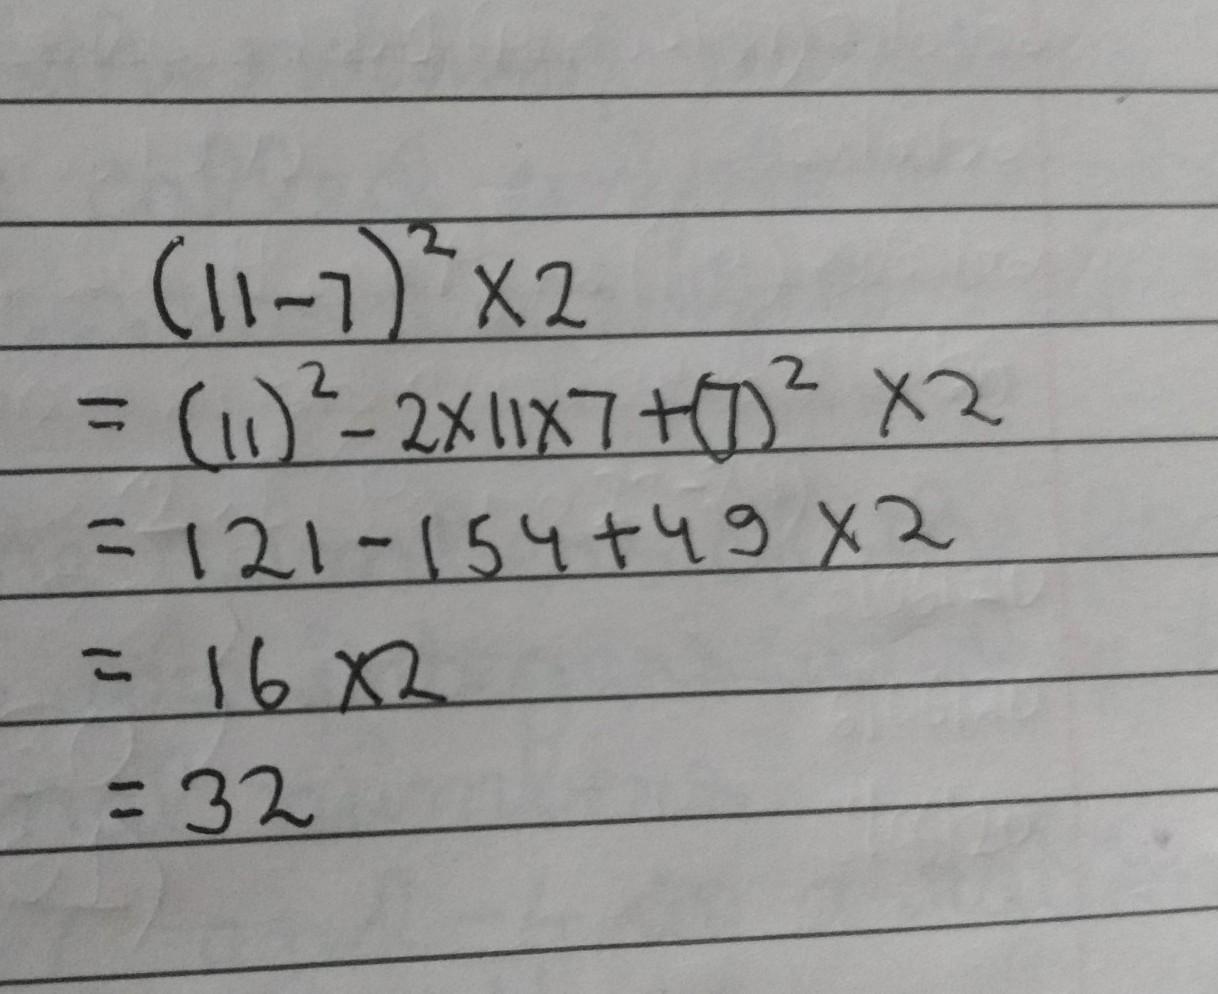 (11-7)² ×2
= (11)² - 2×11×7 +(7)² ×2
= 121-154+49 ×2
= 16 ×2
= 32